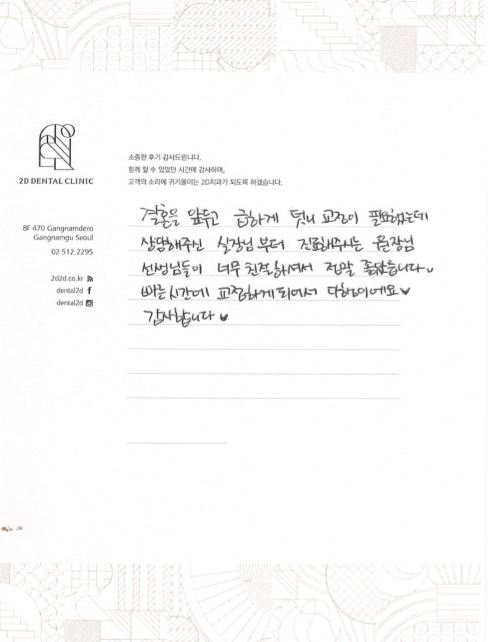 소중한 후기 감사드립니다.
함께 할 수 있었던 시간에 감사하며,
고객의 소리에 귀기울이는 2D치과가 되도록 하겠습니다.
2D DENTAL CLINIC
8F 470 Gangnamdero
Gangnamgu Seoul
02 512 2295
2d2d.co.kr
dental2d
dental2d
결혼을 앞두고 급하게 덧니 교정이 필요했는데
상명해주신 실장님부터 진료해주시는 원장님
선생님들이 너무 친절하셔서 정말 좋았습니다
빠른시간에 교정하게되어서 다행이에요♥
감사합니다♥